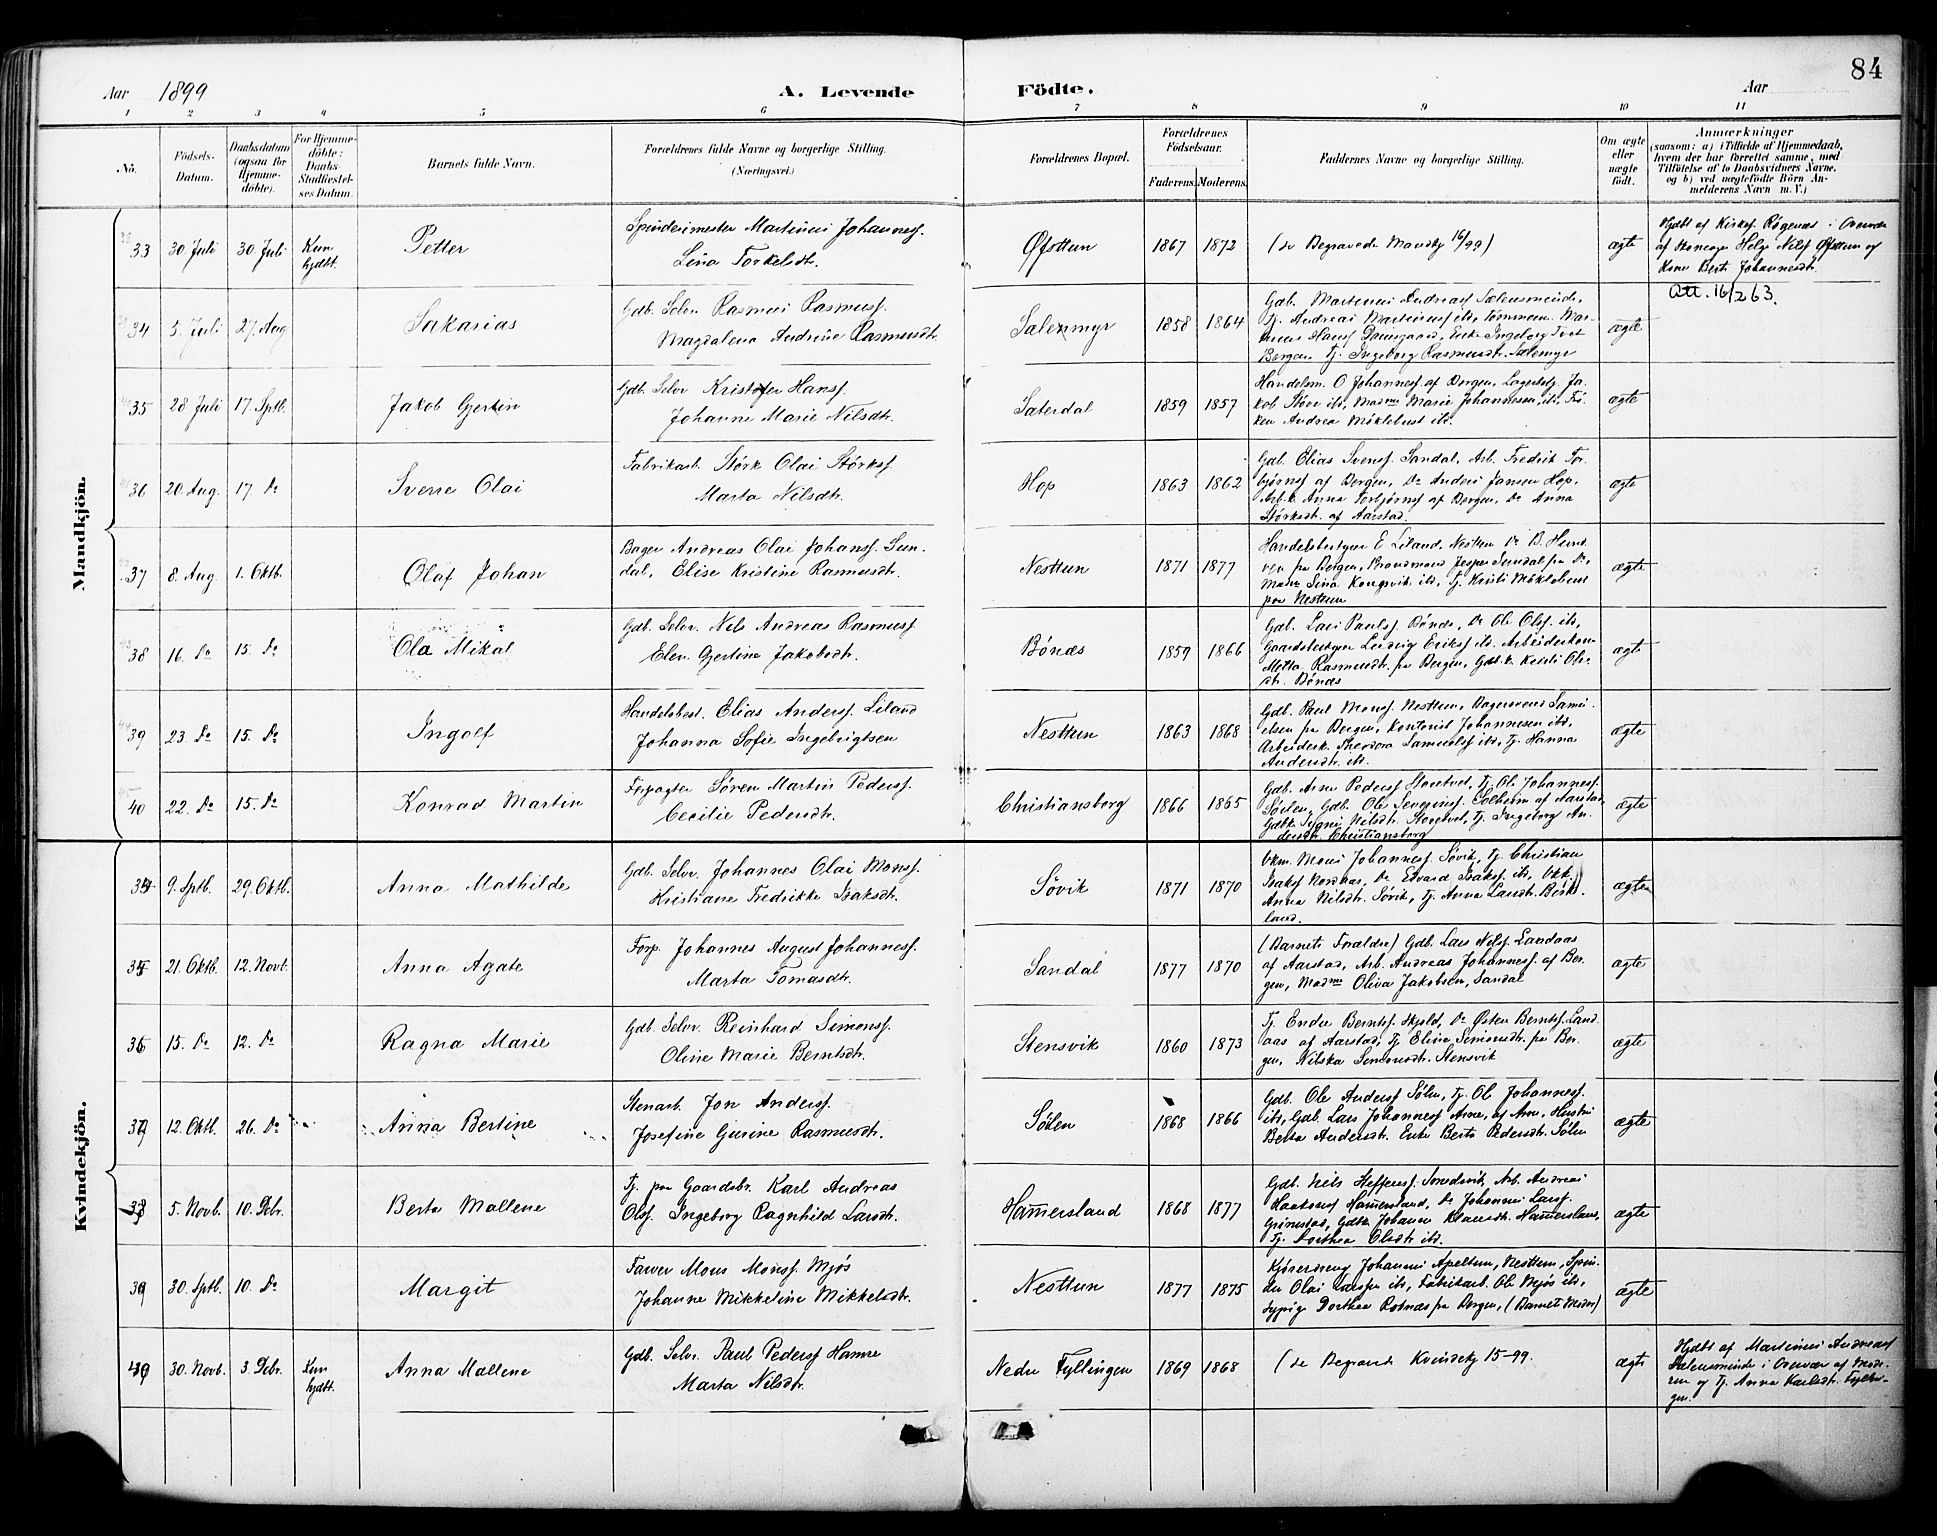 84
Aar 1899
A. Levende
Födte.
Aar
1 2 3 4 5 6 7 8 9 10 11
No.
Födsels-
Datum.
Daabsdatum
(ogsaa for
Hjemme-
döbte).
For Hjemme-
döbte:
Daabs-
Stadfæstel-
ses Datum.
Barnets fulde Navn.
Forældrenes fulde Navne og borgerlige Stilling.
(Næringsvei.)
Forældrenes Bopæl.
Forældrenes
Födselsaar.
Faderens. Moderens.
Faddernes Navne og borgerlige Stilling.
Om ægte
eller
uægte
født.
Anmærkninger
(saasom: a) i Tilfælde af Hjemmedaab,
hvem der har forrettet samme, med
Tilföielse af to Daabsvidners Navne,
og b) ved uægtefödte Börn An-
melderens Navn m. V.)
Mandkjön.
33 30 Juli 30 Juli Kun
hjdbt.
Petter
Spinderimester Martinus Johannesf.
Lina Torkelsdtr.
Øfsttun 1867 1872
(se Begravede Mandkj 16/99)
ægte
Hjdbt af Kirkes. Røgenes i Overvær
af Stenarb. Helge Nilsf Øfsttun og
Kone Berta Johannesdtr.
Att. 16/2 63.
34 5. Juli 27. Aug
Sakarias
Gdb. Selv. Rasmus Rasmusf.
Magdalena Andrine Rasmusdtr.
Sælenmyr 1858 1864
Gdb. Martinus Andreasf Sælensminde,
Tj. Andreas Martinusf ibd, Tømmerm. Mar-
tinus Hansf Damsgaard, Enke Ingeborg Tvet
Bergen, Tj. Ingeborg Rasmusdtr. Sælemyr
ægte
35 28 Juli 17. Sptb.
Jakob Gjertin
Gdb. Selv Kristofer Hansf.
Johanne Marie Nilsdtr.
Sæterdal 1859 1857
Handelsm. O Johannesf af Bergen, Lagerbetj. Ja-
kob Støve ibd, Madme Marie Johannesen, ibd, Frø-
ken Andrea Møklebust ibd.
ægte
36 20. Aug. 17. Do
Sverre Olai
Fabrikarb. Størk Olai Størksf.
Marta Nilsdtr.
Hop 1863 1862
Gdb. Elias Svensf. Sandal, Arb. Fredrik Tor-
bjørnsf af Bergen, Do Anders Jansen Hop,
Arb.k. Anna Torbjørnsf af Bergen, Do Anna
Størksdtr. af Aarstad.
ægte
37 8. Aug. 1. Oktb.
Olaf Johan
Bager Andreas Olai Johansf. Sun-
dal, Elise Kristine Rasmusdtr.
Nesttun 1871 1877
Handelsbestyrer E Liland, Nesttun Do B.
pa Bergen, Brandmand Jesper Sundal fra Do,
Madm Lina Kongsvik ibd, Tj. Kristi Møklebust
paa Nesttun
ægte
38 16. Do 15. Do
Ola Mikal
Gdb. Selv. Nils Andreas Rasmusf
Elen Gjertine Jakobsdtr.
Bønæs 1859 1866
Gdb. Lars Paulsf Bønæs, Do Ole Olsf. ibd,
Gaardsbestyrer Ludvig Eriksf ibd. Arbeiderkone
Metta Rasmusdtr. fra Bergen, Gdb.k. Kristi Ols-
dtr. Bønæs
ægte
39 23 Do 15. Do
Ingolf
Handelsbest. Elias Andersf. Liland
Johanna Sofie Ingebrigtsen
Nesttun 1863 1868
Gdb. Paul Monsf Nesttun, Bagersvend Samu-
elsen fra Bergen, Kontorist Johannesen ibd,
Arbeiderk. Theodora Samuelsf ibd, Tj. Hanna
Andersdtr. ibd.
ægte
40 22. Do 15. Do
Konrad Martin
Forpagter Søren Martin Pedersf.
Cecilie Pedersdtr.
Christiansborg 1866 1865
Gdb. Arne Pedersf Storetvet, Tj. Ole Johannesf.
Sørlen, Gdb. Ole Severinsf. Solheim af Aarstad,
Gdbk. Signi Nilsdtr. Storetvet, Tj. Ingeborg An-
dersdtr Christiansborg
ægte
Kvindekjön.
34 9. Sptb. 29. Oktb.
Anna Mathilde
Gdb. Selv. Johannes Olai Monsf.
Kristiane Fredrikke Isaksdtr.
Søvik 1871 1870
Ukm. Mons Johannesf. Søvik, Tj. Christian
Isaksf Nordaas, Do Edvard Isaksf. ibd, Ukk
Anna Nilsdtr. Søvik, Tj. Anna Larsdtr. Birke-
land.
ægte
35 21. Oktb. 12. Novb.
Anna Agate
Forp. Johannes August Johannesf.
Marta Tomasdtr.
Sandal 1877 1870
(Barnets Forældre) Gdb. Lars Nilsf. Landaas
af Aarstad, Arb. Andreas Johannesf. af Ber-
gen, Madme Oliva Jakobsen, Sandal
ægte
36 15. Do 12. Do
Ragna Marie
Gdb. Selv. Reinhard Simonsf.
Oline Marie Berntsdtr.
Stensvik 1860 1873
Tj. Endre Berntsf. Skjold, Do Østen Berntsf. Land-
aas af Aarstad, Tj Eline Simonsdtr. fra Ber-
gen, Nilska Simonsdtr. Stensvik
ægte
37 12. Oktb. 26. Do
Anna Bertine
Stenarb. Jon Andersf.
Josefine Gurine Rasmusdtr.
Sølen 1868 1866
Gdb. Ole Andersf Sølen, Tj. Ole Johannesf.
ibd, Gdb. Lars Johannesf Arne, af Arne, Hustru
Berta Andersdtr. Enke Berta Pedersdtr. Sølen
ægte
38 5. Novb. 10. Debr.
Berta Mallene
Tj. paa Gaardsbr. Karl Andreas
Olsf. Ingeborg Ragnhild Larsdtr.
Hammersland 1868 1877
Gdb. Nils Steffensf. Smedsvik, Arb. Andreas
Haakonsf Hammersland, Do Johannes Larsf.
Grimstad, Gdbk. Johanna Klausdtr. Hammersland,
Tj. Dorthea Olsdtr ibd.
ægte
39 30. Sptb. 10. Do
Margit
Farver Mons Monsf. Mjøs
Johanne Mikkeline Mikkelsdtr.
Nesttun 1877 1875
Kjøredreng Johannes Apeltun, Nesttun, Spin-
der Olai Larsen ibd, Fabrikarb. Ole Mjøs ibd,
Sypige Dorthea Rotnæs fra Bergen, (Barnets Moder)
ægte
40 30. Novb. 3. Debr. Kun
hjdbt.
Anna Mallene
Gdb. Selv. Paul Pedersf Hamre
Marta Nilsdtr.
Nedre Fyllingen 1869 1868
(se Begravede Kvindekj 15-99.
ægte
Hjdbt af Martinus Andreasf
Sælensminde i Overvær af Mode-
ren og Tj. Anna Karlsdtr. Fyllin-
gen.